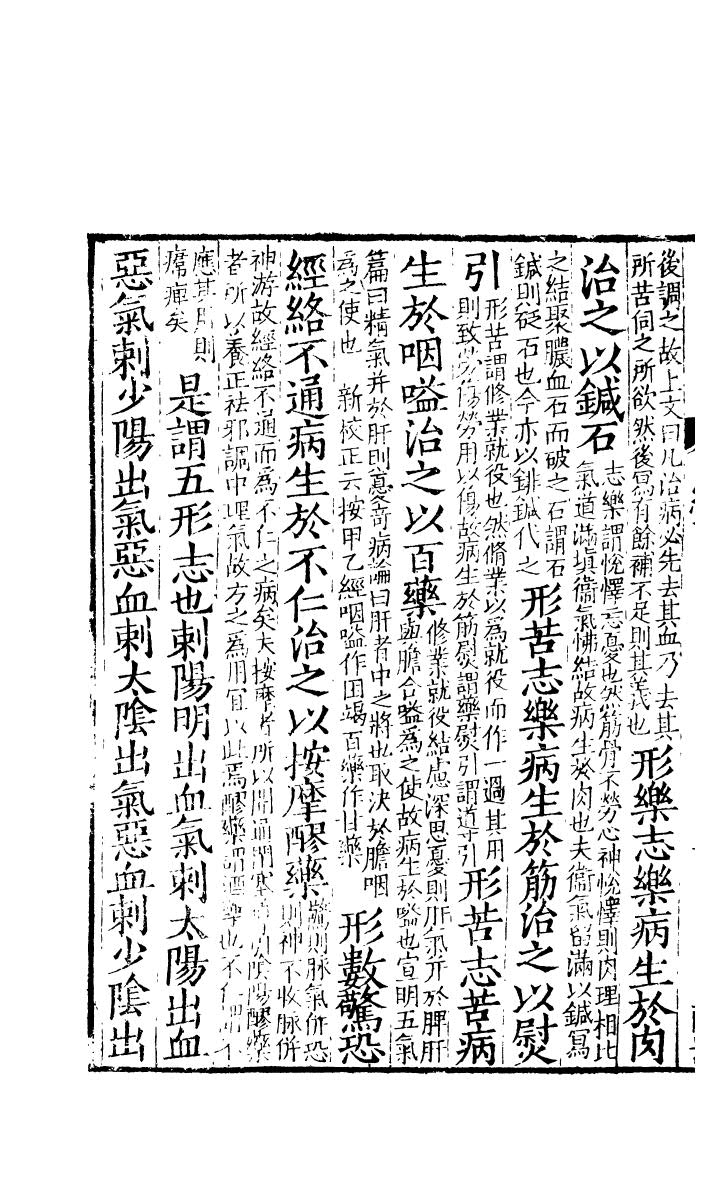 後調之故上文曰凡治病必先去其血乃去其
所苦伺之所欲然後寫有餘補不足則其義也
形樂志樂病生於肉
治之以鍼石
志樂謂悅懌忘憂也然筋骨不勞心神悅懌則肉理相比
氣道滿填衞氣怫結故病生於肉也夫衞氣留滿以鍼寫
之結聚膿血石而破之石謂石
鍼則砭石也今亦以鈹鍼代之
形苦志樂病生於筋治之以熨
引
形苦謂修業就役也然脩業以為就役而作一過其用
則致勞傷勞用以傷故病生於筋熨謂藥熨引謂導引
形苦志苦病
生於咽嗌治之以百藥
修業就役結慮深思憂則肝氣并於脾肝
與膽合嗌為之使故病生於嗌也宣明五氣
篇曰精氣并於肝則憂奇病論曰肝者中之將也取決於膽咽
為之使也 新校正云按甲乙經咽嗌作困竭百藥作甘藥
形數驚恐
經絡不通病生於不仁治之以按摩醪藥
驚則脉氣併恐
則神不收脉併
神游故經絡不通而為不仁之病矣夫按摩者所以開通閉塞導引陰陽醪藥
者所以養正袪邪調中理氣故方之為用宜以此焉醪藥謂酒藥也不仁謂不
應其用則
𤸷痹矣
是謂五形志也刺陽明出血氣刺太陽出血
惡氣刺少陽出氣惡血刺太陰出氣惡血刺少陰出